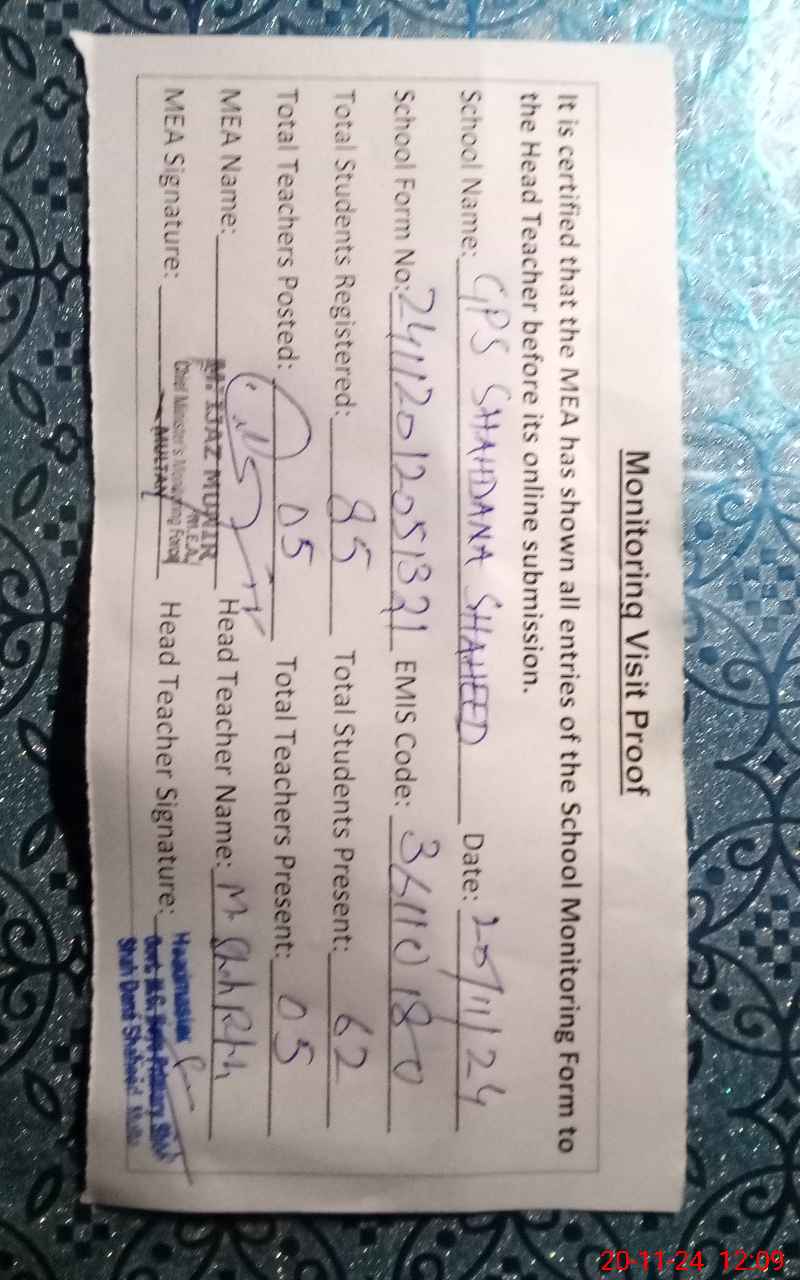 Monitoring Visit Proof
It is certified that the MEA has shown all entries of the School Monitoring Form to
the Head Teacher before its online submission.
School Name: GPS SHAHDANA SHAHEED Date: 20/11/24
School Form No: 241112012051321 EMIS Code: 36110180
Total Students Registered: 85 Total Students Present: 62
Total Teachers Posted: 05 Total Teachers Present: 05
MEA Name: M. IJAZ MUNIR Head Teacher Name: M.
M.E.A.
Chief Minister's Monitoring Force
MULTAN
MEA Signature: Head Teacher Signature:
Shah Dana Shaheed
20-11-24 12:09